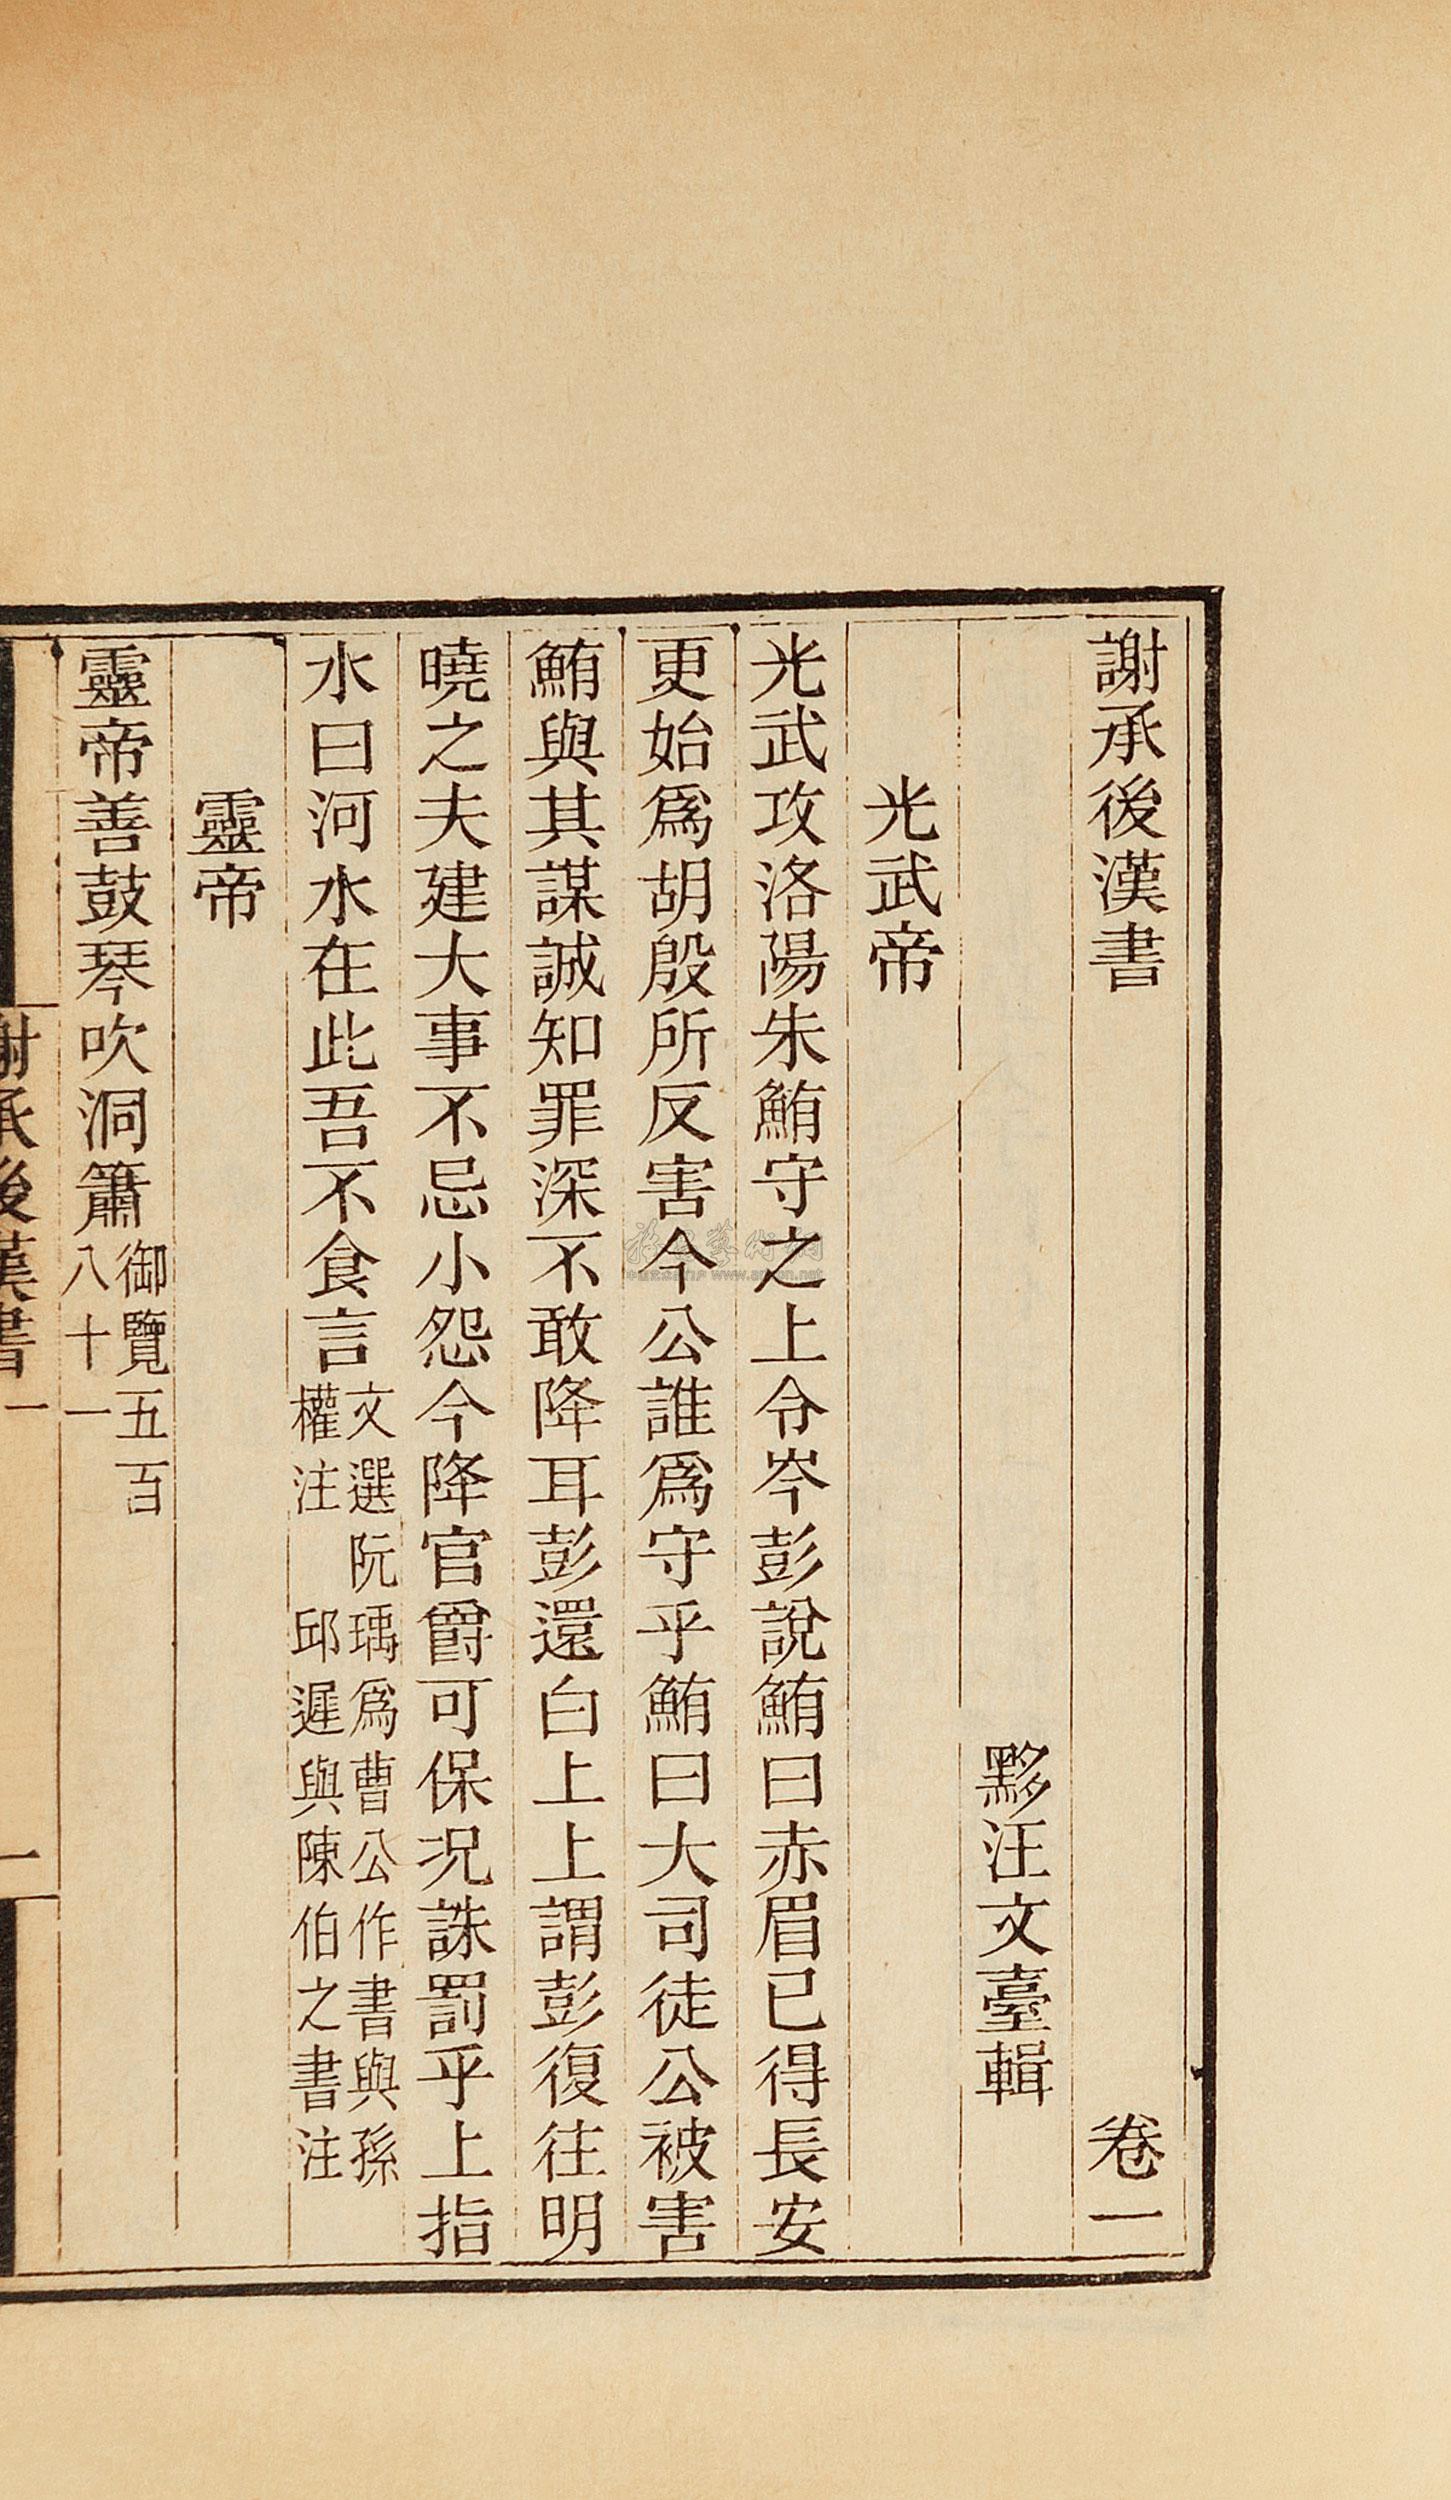 謝承後漢書 卷一
黟汪文臺輯
光武帝
光武攻洛陽朱鮪守之上令岑彭說鮪曰赤眉已得長安
更始爲胡殷所反害今公誰爲守乎鮪曰大司徒公被害
鮪與其謀誠知罪深不敢降耳彭還白上上謂彭復往明
曉之夫建大事不忌小怨今降官爵可保况誅罰乎上指
水曰河水在此吾不食言
文選阮瑀爲曹公作書與孫
權注 邱遲與陳伯之書注
靈帝
靈帝善鼓琴吹洞簫
御覽五百
八十一
謝承後漢書一
一
www.artron.net